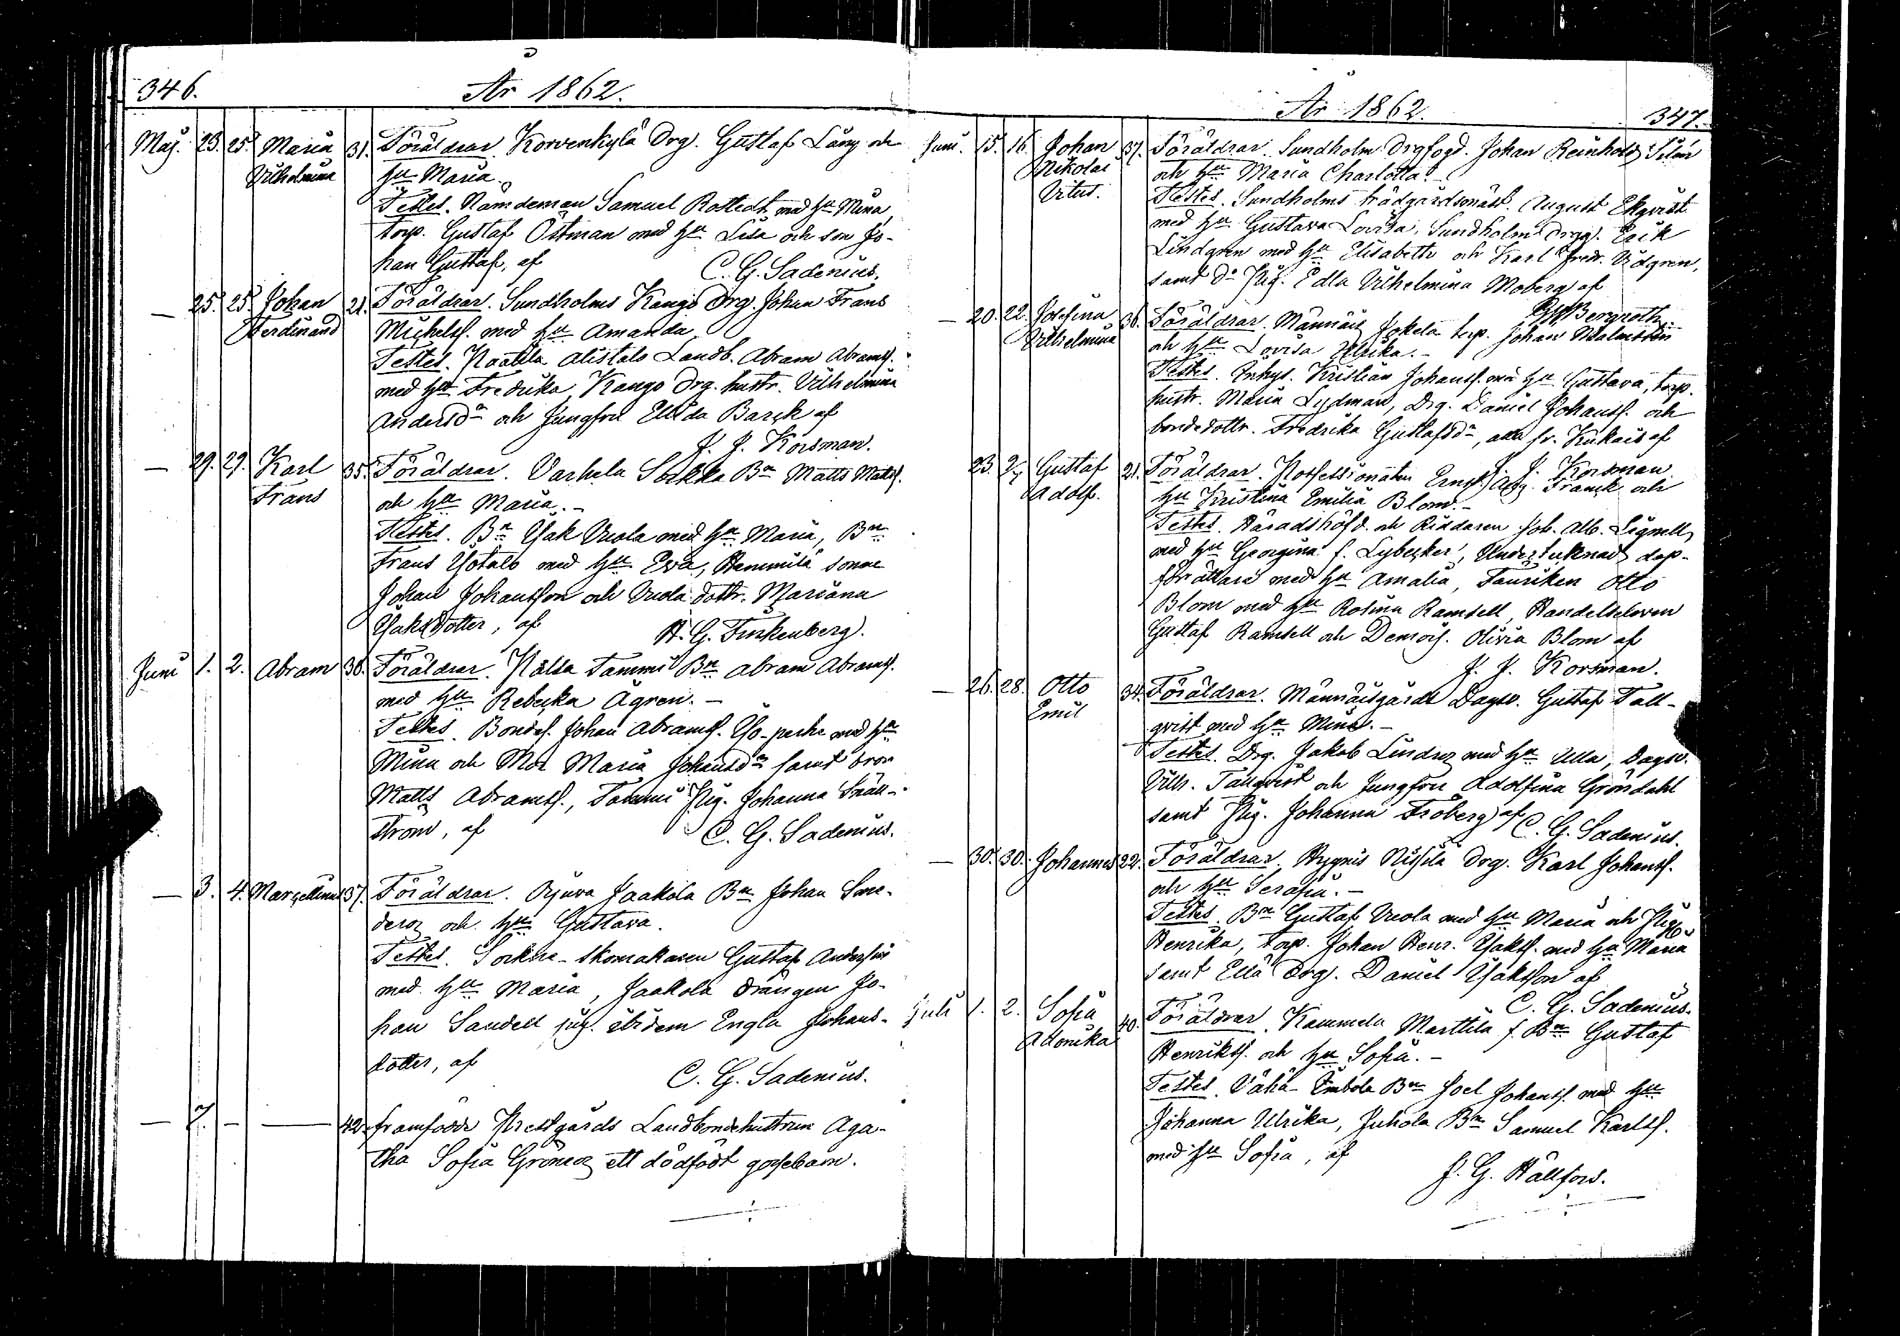 346.
År 1862.
Maj. 23. 25. Maria Vilhelmina 31. Föräldrar. Korvenkylä Drg. Gustaf Lång och
hu Maria.
Testes. Nämdeman Samuel Rostedt med hu Mina,
torp. Gustaf Östman med hu Lisa och son Jo-
han Gustaf, af
C. G. Sadenius.
— 25. 25. Johan Ferdinand 21. Föräldrar. Sundholms Kango Drg. Johan Frans
Mickelss. med hu Amanda.
Testes. Alistalo Landb. Abram Abramss.
med hu Fredrika, Kango Drg. hustr. Vilhelmina
Andersdr och Jungfru Elida Barck af
J. J. Korsman.
— 29. 29. Karl Frans 35. Föräldrar. Varhela Sorkka Bn Matts Mattss.
och hu Maria.—
Testes. Bn Isak Uvola med hu Maria, Bn
Frans Isotalo med hu Eva, Hemmilä sonne
Johan Johansson och Uvola dottr. Mariana
Isaksdotter, af
H. G. Finkenberg.
Juni 1. 2. Abram 38. Föräldrar. Kalsa Tammi Bn Abram Abramss.
med hu Rebecka Ågren.—
Testes. Bondes. Johan Abramss. med hu
Mina och Mor Maria Johansdr samt bror
Matts Abramss., Tammi Pig. Johanna Snäll-
ström, af
C. G. Sadenius.
— 3. 4. Marcellinus 37. Föräldrar. Jaakola Bn Johan
och hu Gustava.
Testes. Sorkka-skomakaren Gustaf Andersson
med hu Maria, Jaakola drängen Jo-
han Sandell pig. ibidem Engla Johans-
dotter, af
C. G. Sadenius.
— 7. — — 42. framfödde Prestgårds Landbondehustrun Aga-
tha Sofia Grönroos ett dödfödt gossebarn.
År 1862.
347.
Juni. 15. 16. Johan Nikolai Vitus. 37. Föräldrar. Sundholm Drgfogd. Johan Reinhold Silén
och hu Maria Charlotta.—
Testes. Sundholms trädgårdsmäst. August Ekqvist
med hu Gustava Lovisa, Sundholms Drgg. Erik
Lindgren med hu Elisabeth och Karl Fredr. Vidgren,
samt do Pig. Edla Vilhelmina Moberg af
Bergroth.
— 20. 22. Josefina Vilhelmina 36. Föräldrar. Männäis Jokela torp. Johan Malmsten
och hu Lovisa Ulrika.—
Testes. Inhys. Kristian Johanss. med hu Gustava, torp.
hustr. Maria Lydman, Drg. Daniel Johanss. och
bondedottr. Fredrika Gustafsdr, alla fr. Kukais af
J. J. Korsman.
23. 24 Gustaf Adolf. 21. Föräldrar. Professionaten Ernst Aug. Franck och
hu Kristina Emilia Blom.—
Testes. Häradshöfd. och Riddaren Joh. Alb. Lignell
med hu Georgina f. Lybecker, Undertecknad dop-
förrättare med hu Amalia, Fänriken Otto
Blom med hu Rosina Ramsell, Handelseleven
Gustaf Ramsell och Demois. Olivia Blom af
J. J. Korsman.
— 26. 28. Otto Emil 34. Föräldrar. Männäisgårds Dagsv. Gustaf Tall-
qvist med hu Mina.—
Testes. Drg. Jakob Lindroos med hu Ulla, Dagsv.
Vilh. Tallqvist och Jungfru Adolfina Gröndahl
samt Pig. Johanna Fröberg af
C. G. Sadenius.
— 30. 30. Johannes 22. Föräldrar. Hygnis Drg. Karl Johanss.
och hu Serafia.—
Testes. Bn Gustaf Uvola med hu Maria och Pig.
Henrika, torp. Johan Henr. Isakss. med hu Maria
samt Ellä Drg. Daniel Isaksson af
C. G. Sadenius.
Juli 1. 2. Sofia Adonika 40. Föräldrar. Kammela Marttila f. Bn Gustaf
Henrikss. och hu Sofia.—
Testes. Vähä-Imbola Bn Joel Johanss. med hu
Johanna Ulrika, Juhola Bn Samuel Karlss.
med hu Sofia, af
J. G. Hällfors.